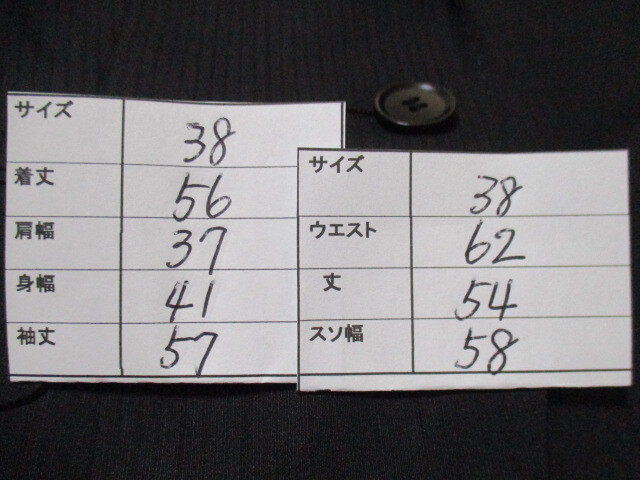 サイズ 38
着丈 56
肩幅 37
身幅 41
袖丈 57
サイズ 38
ウエスト 62
丈 54
スソ幅 58